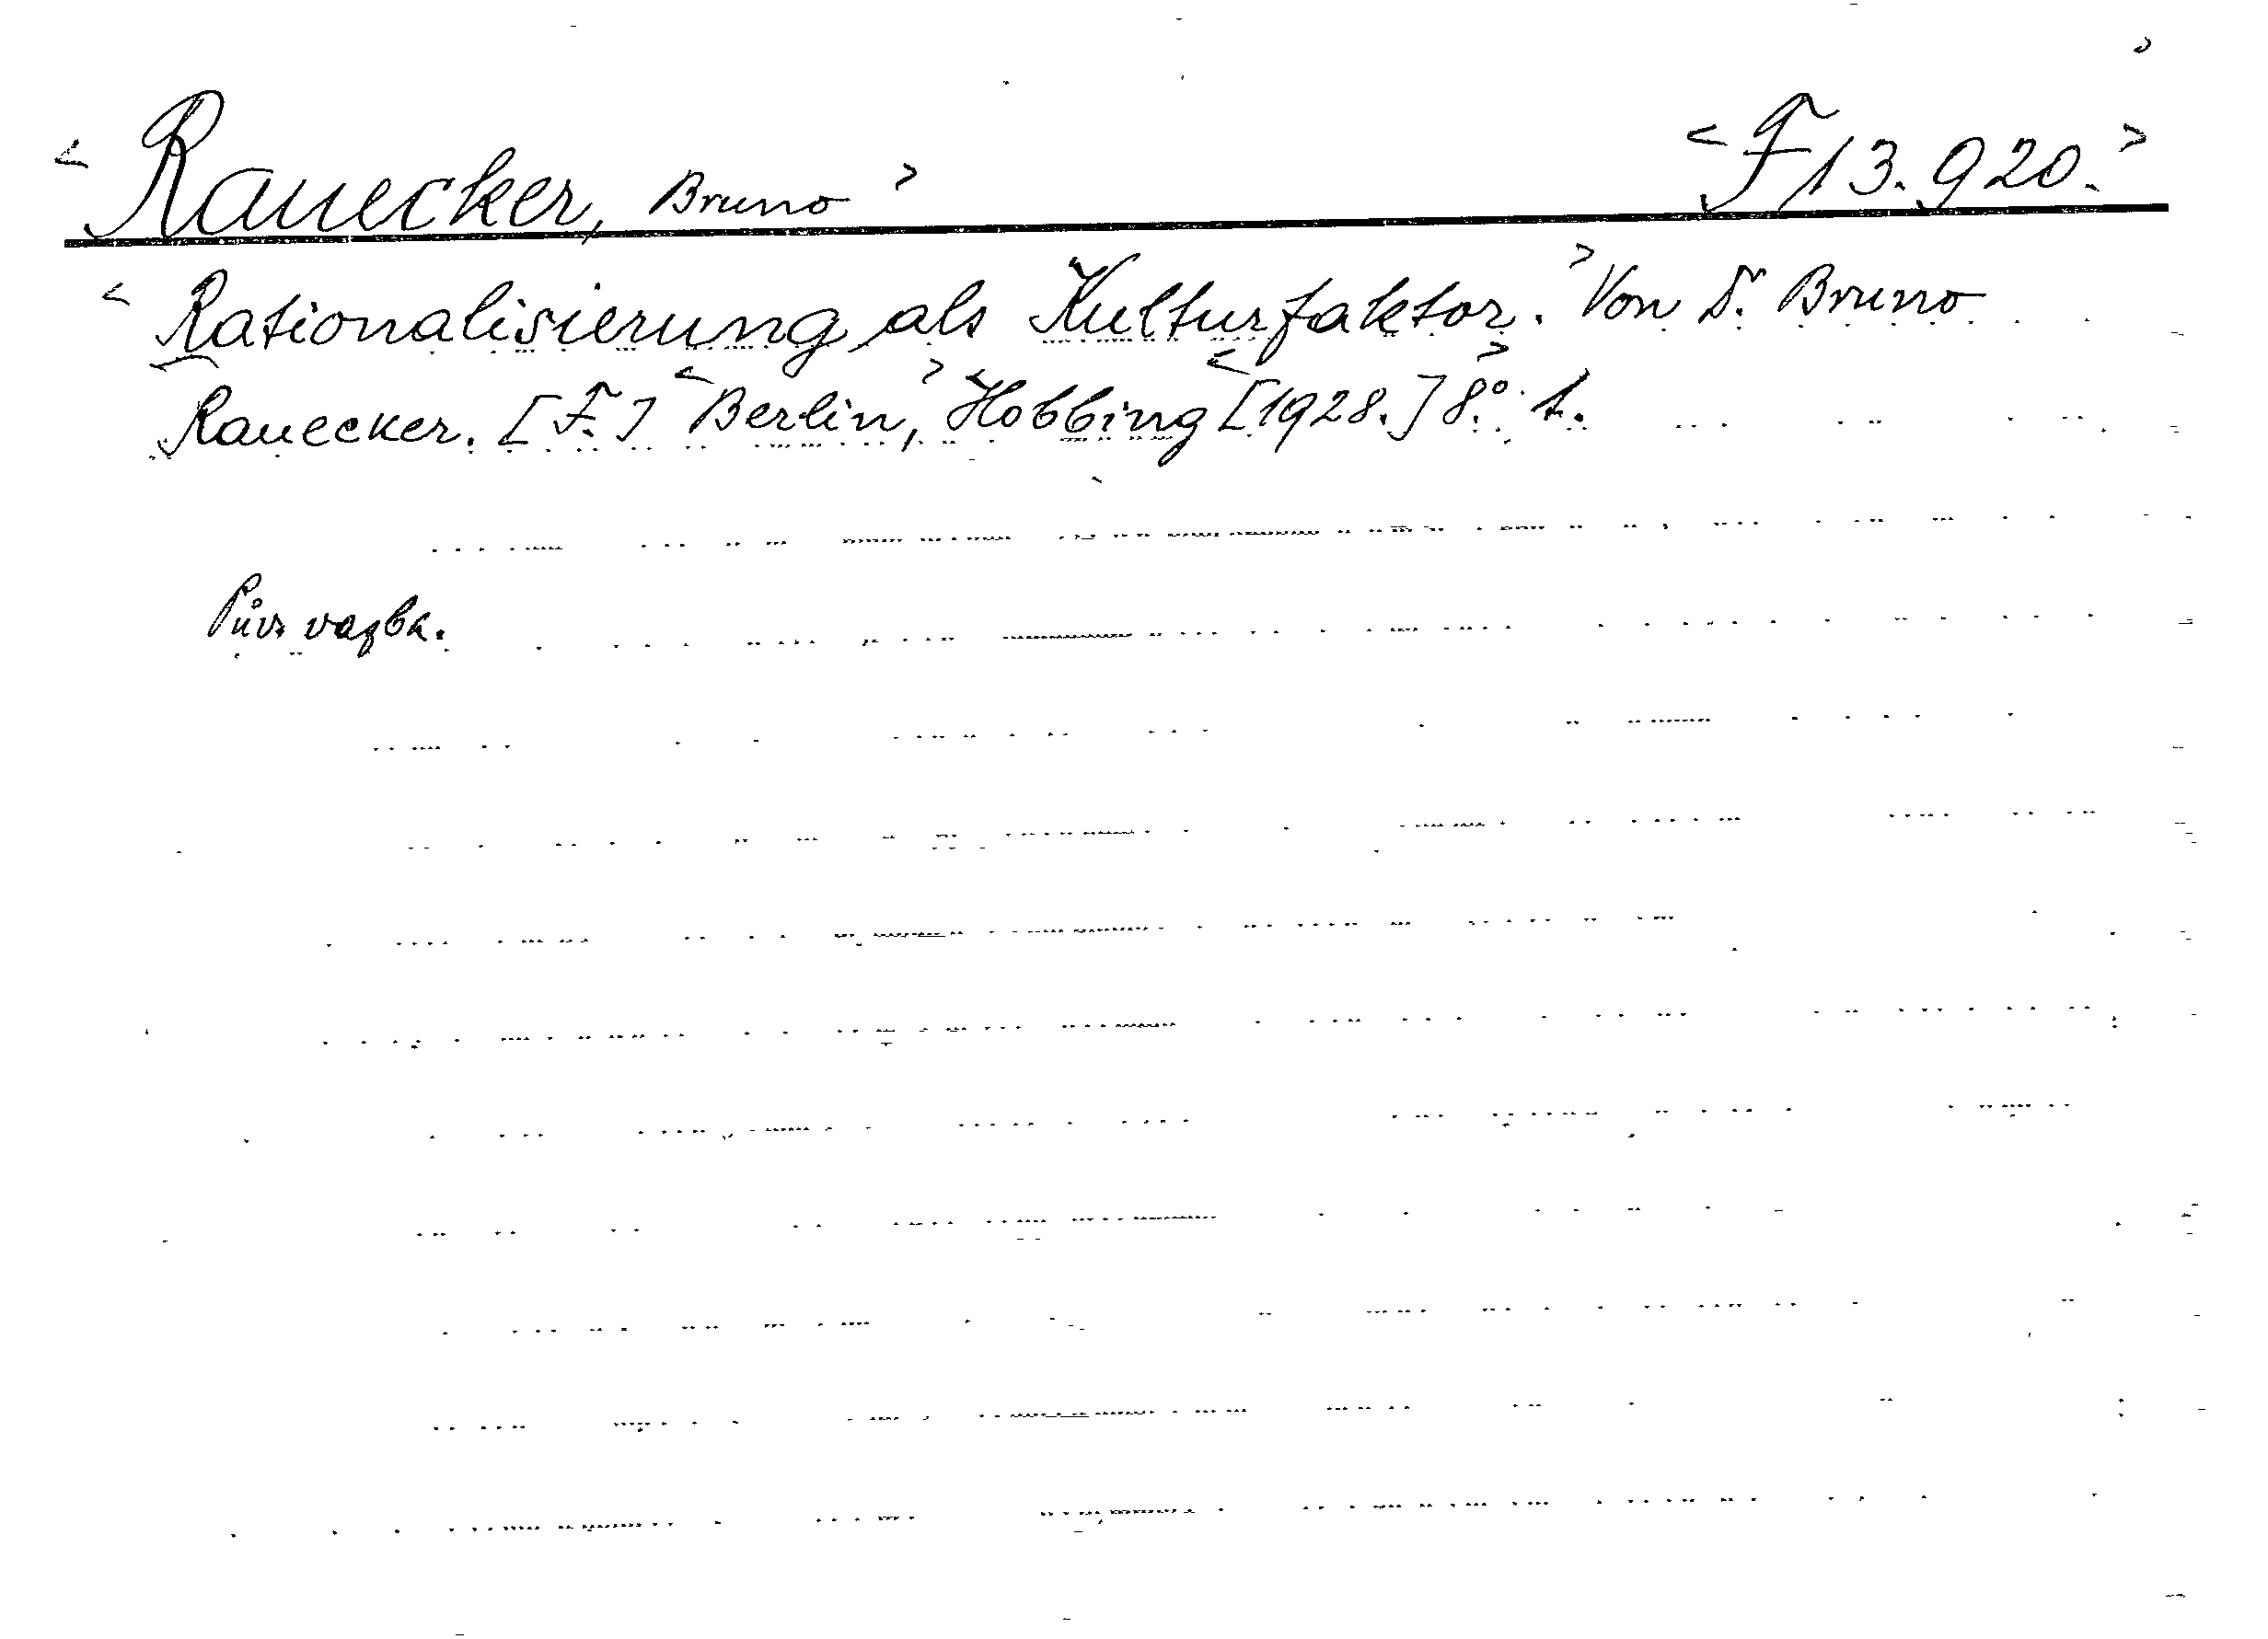 < Rauecker, Bruno > < F 13.920. >
< Rationalisierung als Kulturfaktor. > Von Dr. Bruno
Rauecker. [F.] < Berlin, > Hobbing < [1928.] > 8.° t.
Pův. vazba.